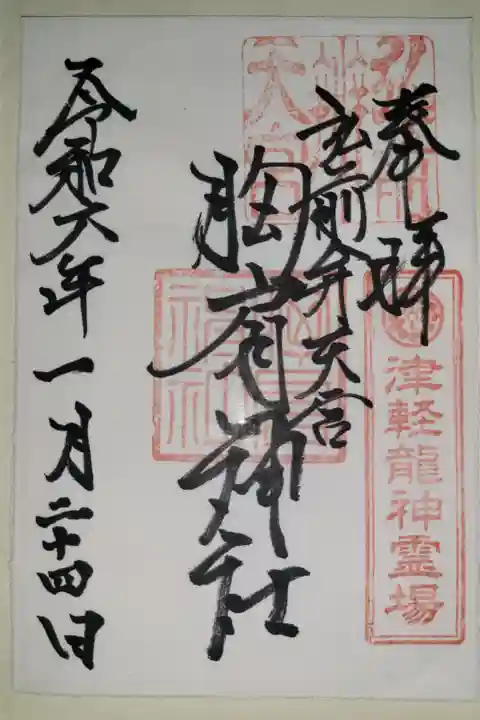 奉拝
津軽龍神霊場
弘前弁天宮
胸肩神社
令和六年一月二十四日